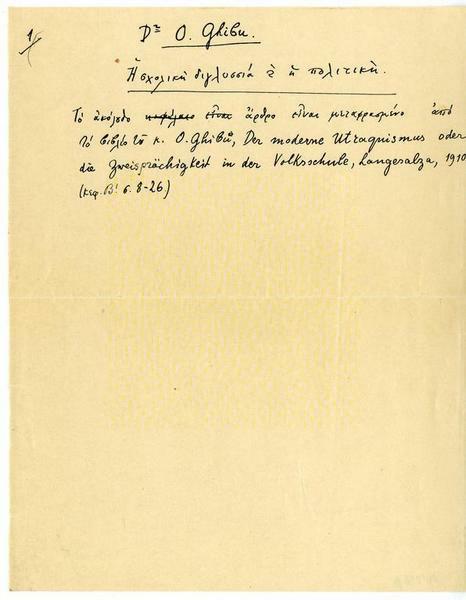 1/
Dr O. Ghibu.
Ἡ σχολικὴ διγλωσσία & ἡ πολιτική.
Τὸ ἀκόλουθο κεφάλαιο εἶναι ἄρθρο εἶναι μεταφρασμένο ἀπὸ
τὸ βιβλίο τοῦ κ. O. Ghibu, Der moderne Utraqnismus oder
die Zweisprächigkeit in der Volksschule, Langesalza, 1910
(κεφ. Β! σ. 8-26.)